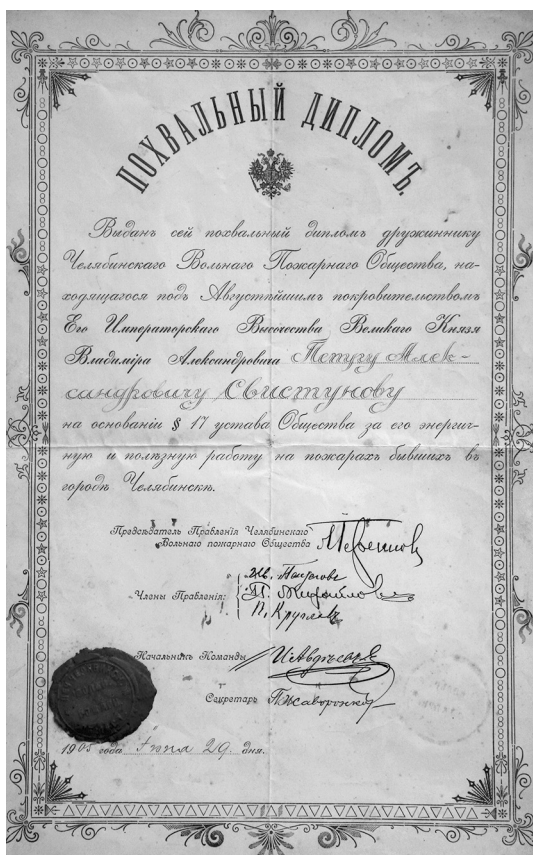 ПОХВАЛЬНЫЙ ДИПЛОМЪ.
Выданъ сей похвальный дипломъ дружиннику
Челябинскаго Вольнаго Пожарнаго Общества, на-
ходящагося подъ Августѣйшимъ покровительствомъ
Его Императорскаго Высочества Великаго Князя
Владиміра Александровича Петугу Алек-
сандровичу Свистунову
на основаніи § 17 устава Общества за его энергич-
ную и полѣзную работу на пожарахъ бывшихъ въ
городѣ Челябинскѣ.
Предсѣдатель Правленія Челябинскаго
Вольнаго пожарнаго Общества
Члены Правленія:
Начальникъ Команды
Секретарь
1905 года 29. дня.